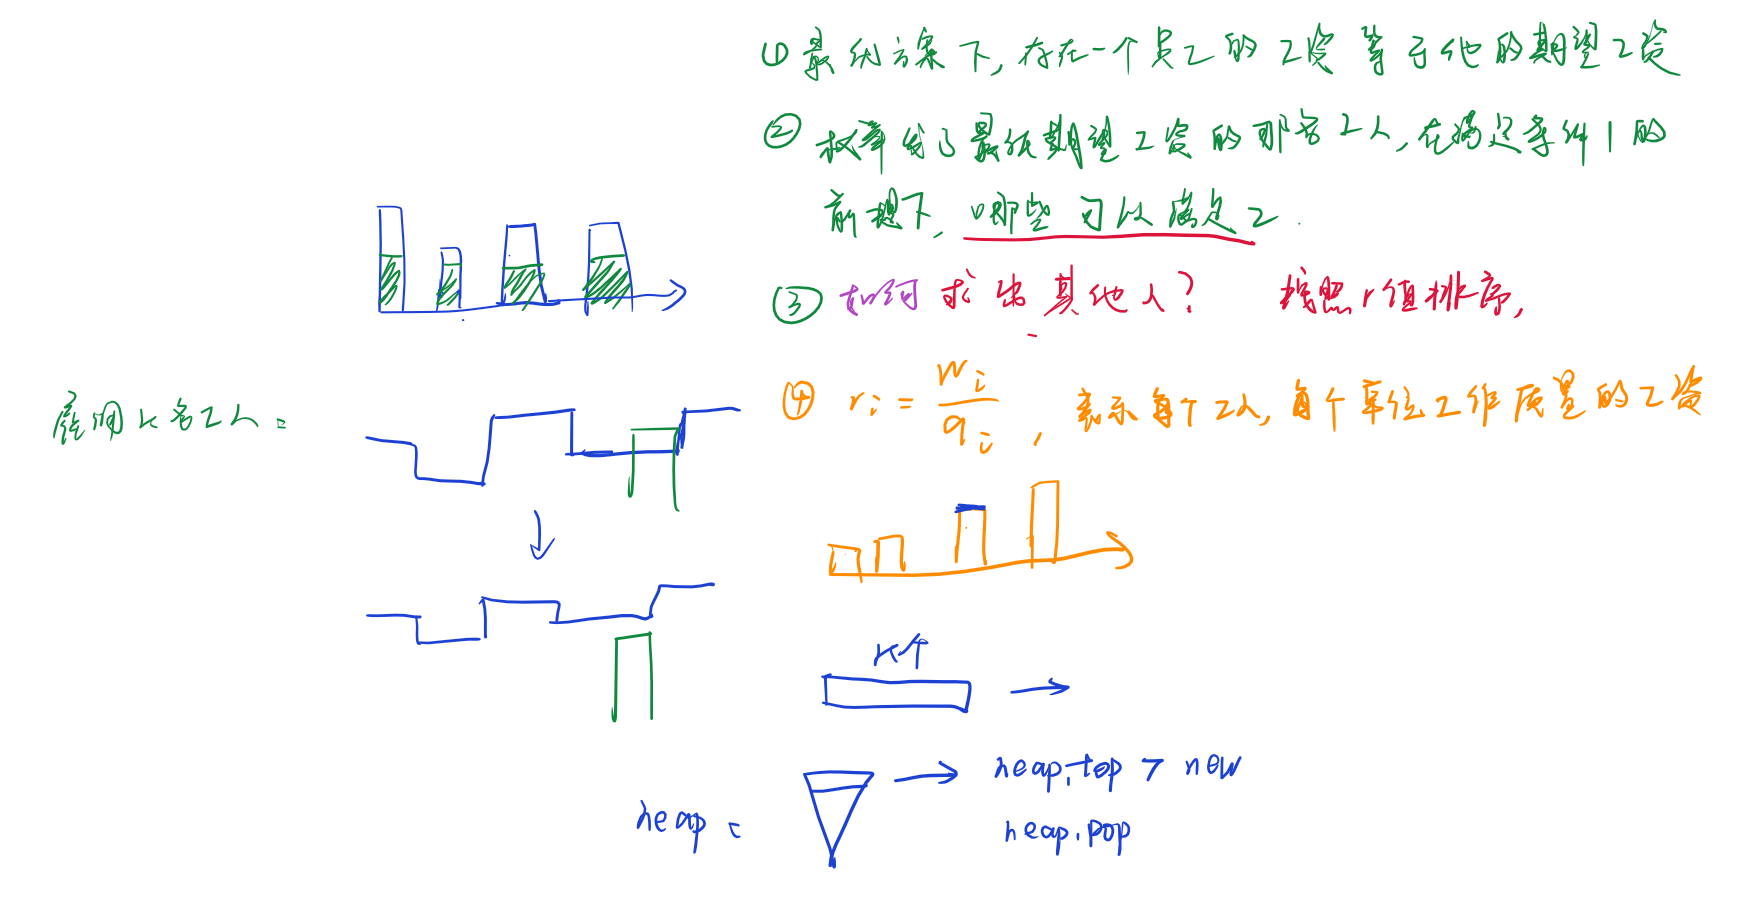 ① 最优方案下，存在一个员工的工资等于他的期望工资
② 枚举线了最低期望工资的那名工人，在满足条件1的
前提下，哪些可以满足2.
③ 如何求出其他人？ 按照r值排序，
④ r_i = w_i / q_i ， 表示每个工人，每个单位工作质量的工资
雇佣k名工人：
k个
heap.top > new
heap =
heap.pop